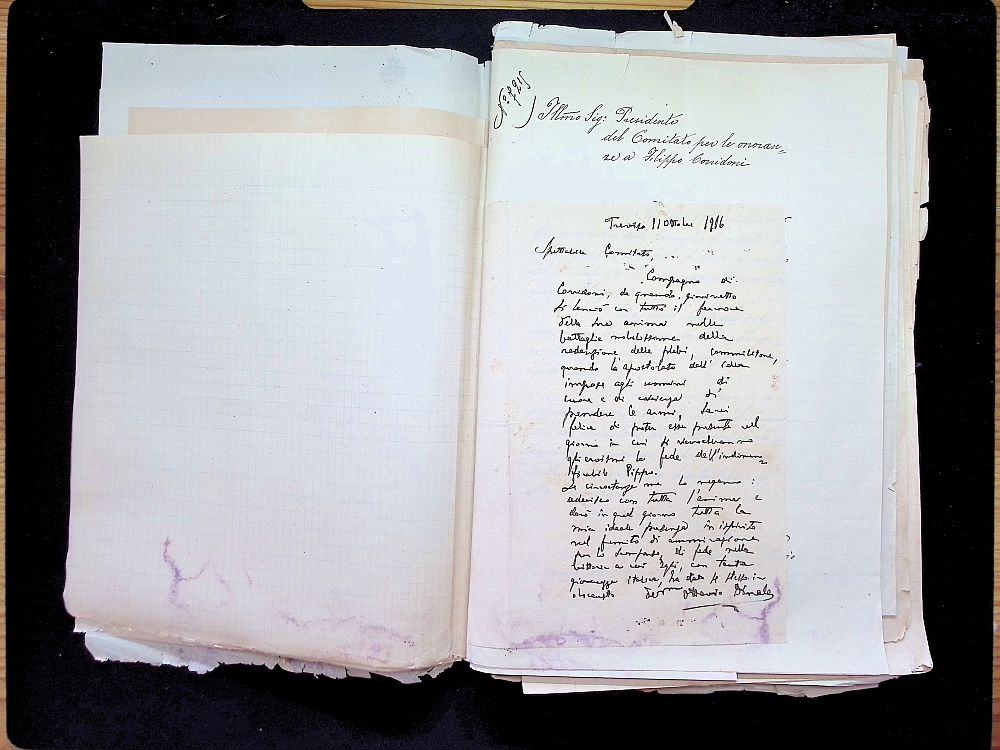 N.° 7215
Illmo Sig: Presidente
del Comitato per le onoran„
ze a Filippo Corridoni
Treviso 11 Ottobre 1916
Spettabile Comitato,
Compagno di
Corridoni, da quando, giovinetto
si lanciò con tutto il fervore
della sua anima nelle
battaglie nobilissime della
redenzione delle plebi, commilitone,
quando lo apostolato dell' idea
impose agli uomini di
cuore e di di
prendere le armi, sarei
felice di poter esser presente nel
giorno in cui si
gli eroismi la fede dell'indimen„
ticabile Pippo.
Le circostanze me lo negano:
aderisco con tutta l'anima e
darò in quel giorno tutta la
mia ideale presenza in ispirito
nel di ammirazione
per lo scomparso, di fede nella
vittoria a cui Egli, con tanta
giovinezza italica, ha dato se stesso in
olocausto Dev.mo Ottavio Dinale